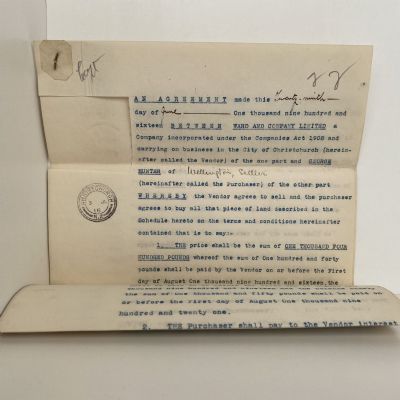 1
Copy
AN AGREEMENT made this Twenty-ninth
day of June One thousand nine hundred and
sixteen BETWEEN WAND AND COMPANY LIMITED a
Company incorporated under the Companies Act 1908 and
carrying on business in the City of Christchurch (herein-
after called the Vendor) of the one part and GEORGE
HUNTER of Wellington, Settler
(hereinafter called the Purchaser) of the other part
WHEREBY the Vendor agrees to sell and the purchaser
agrees to buy all that piece of land described in the
Schedule hereto on the terms and conditions hereinafter
contained that is to say:-
1. THE price shall be the sum of ONE THOUSAND FOUR
HUNDRED POUNDS whereof the sum of One hundred and forty
pounds shall be paid by the Vendor on or before the First
day of August One thousand nine hundred and sixteen, the
the sum of One thousand and fifty pounds shall be paid on
or before the First day of August One thousand nine
hundred and twenty one.
2. THE Purchaser shall pay to the Vendor interest